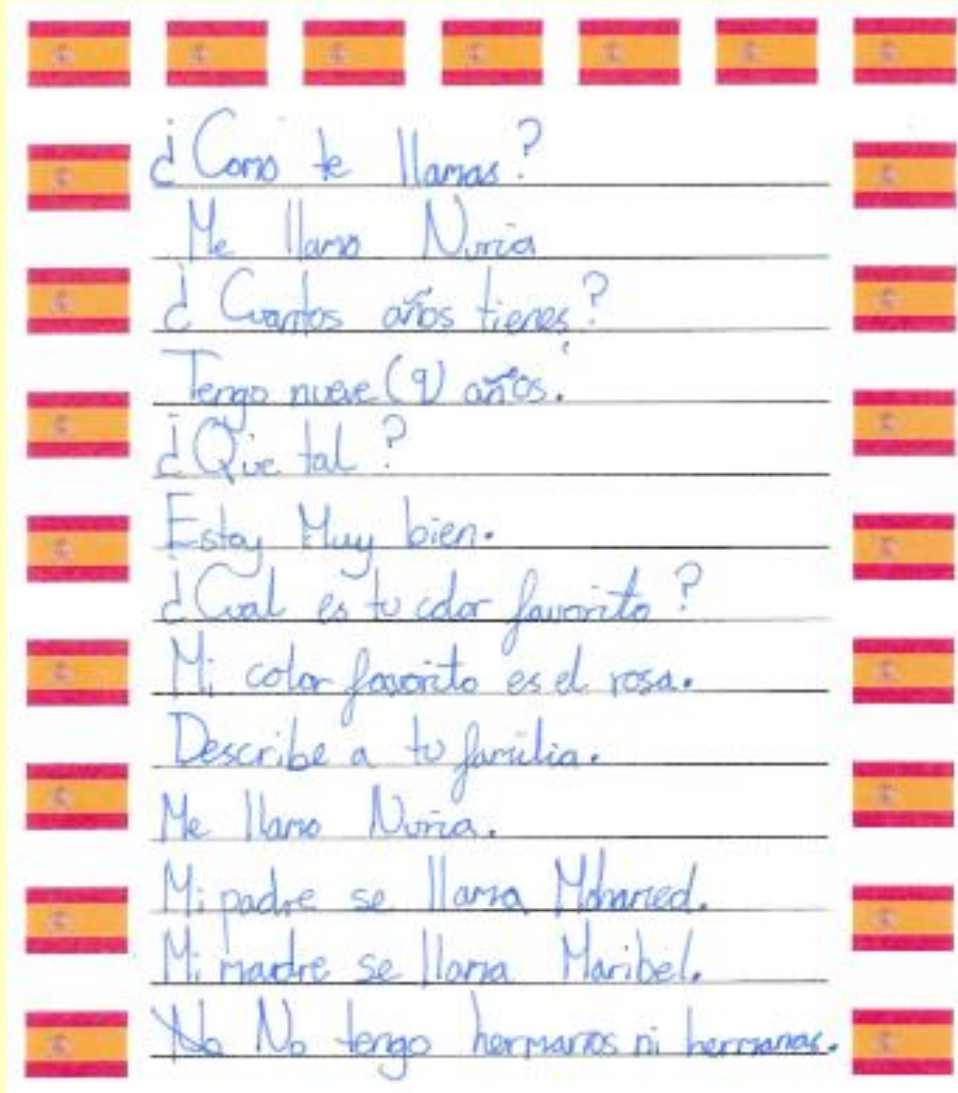 ¿Como te llamas?
Me llamo Nuria
¿Cuantos años tienes?
Tengo nueve (9) años.
¿Que tal?
Estoy Muy bien.
¿Cual es tu color favorito?
Mi color favorito es el rosa.
Describe a tu familia.
Me llamo Nuria.
Mi padre se llama Mohamed.
Mi madre se llama Maribel.
No No tengo hermanos ni hermanas.